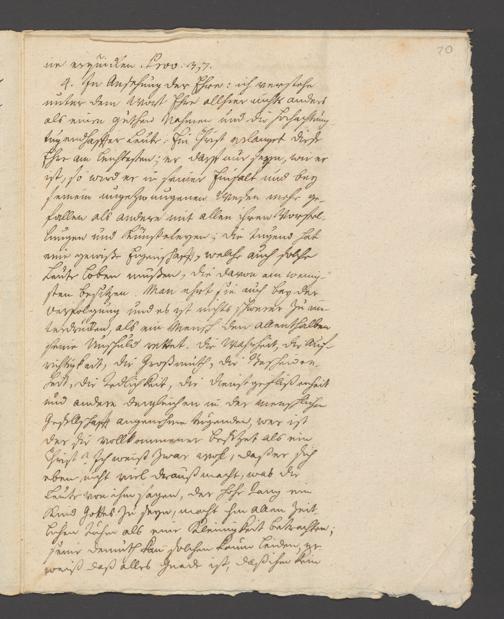 20
ein erquicken. Prov: 3,7.
4. In Ansehung der Ehre: ich verstehe
unter dem Wort Ehre allhier nichts anders
als einen guthen Nahmen und die Hochachtung
tugendhaffter Leute: Ein Christ erlanget diese
Ehre am leichtesten; er darff nur seyn, wer er
ist, so wird er in seiner Einfalt und bey
seinem ungezwungenen Wesen mehr ge-
fallen als andere mit allen ihren Vorstel-
lungen und Künsteleyen; die Tugend hat
eine gewisse Eigenschafft, welche auch solche
Leute loben müssen, die davon am wenig-
sten besitzen. Man ehret sie auch bey der
Verfolgung und es ist nichts schwerer zu un-
terdrücken, als ein Mensch den allenthalben
seine Unschuld rettet. Die Wahrheit, die Auf-
richtigkeit, die Großmuth, die Bescheiden-
heit, die Redlichkeit, die Dienstgeflißenheit
und andere dergleichen in der menschlichen
Gesellschafft angenehme Tugenden, wer ist
der sie vollkommener besitzet als ein
Christ? Ich weiß zwar wohl, daß er sich
eben nicht viel daraus macht, was die
Leute von ihm sagen, der hohe Rang ein
Kind Gottes zu seyn, macht ihm allen zeit-
lichen Ruhm als eine Kleinigkeit betrachten;
seine Demuth kan solchen kaum leiden, er
weiß daß alles Gnade ist, daß ihm kein